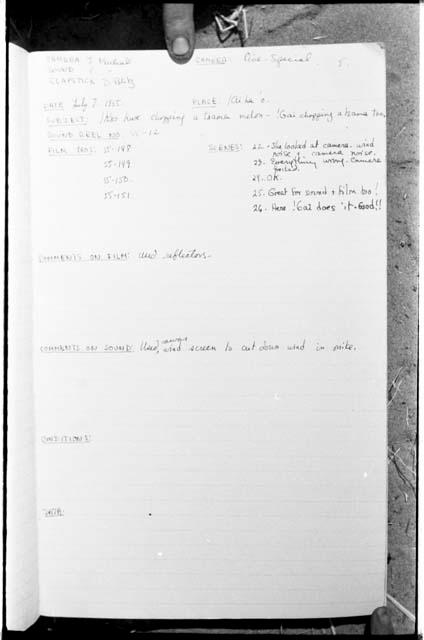 CAMERA: J. Marshall CAMERA: Cine-Special 5.
SOUND "
CLAPSTICK D. Blitz
DATE July 7. 1955. PLACE: /Ai ha 'o.
SUBJECT: chopping a tsama melon - !Gai chopping a tsama too,
SOUND REEL NO. 12
FILM NOS: 55-148 SCENES: 22. She looked at camera. wind
noise & camera noise.
55-149 23. Everything wrong. camera
failed.
55-150 24. OK.
55-151 25. Great for sound & film too!
26. Here !Gai does it. Good!!
COMMENTS ON FILM: Used reflectors.
COMMENTS ON SOUND: Used canvas wind screen to cut down wind in mike.
CONDITIONS:
DATA: